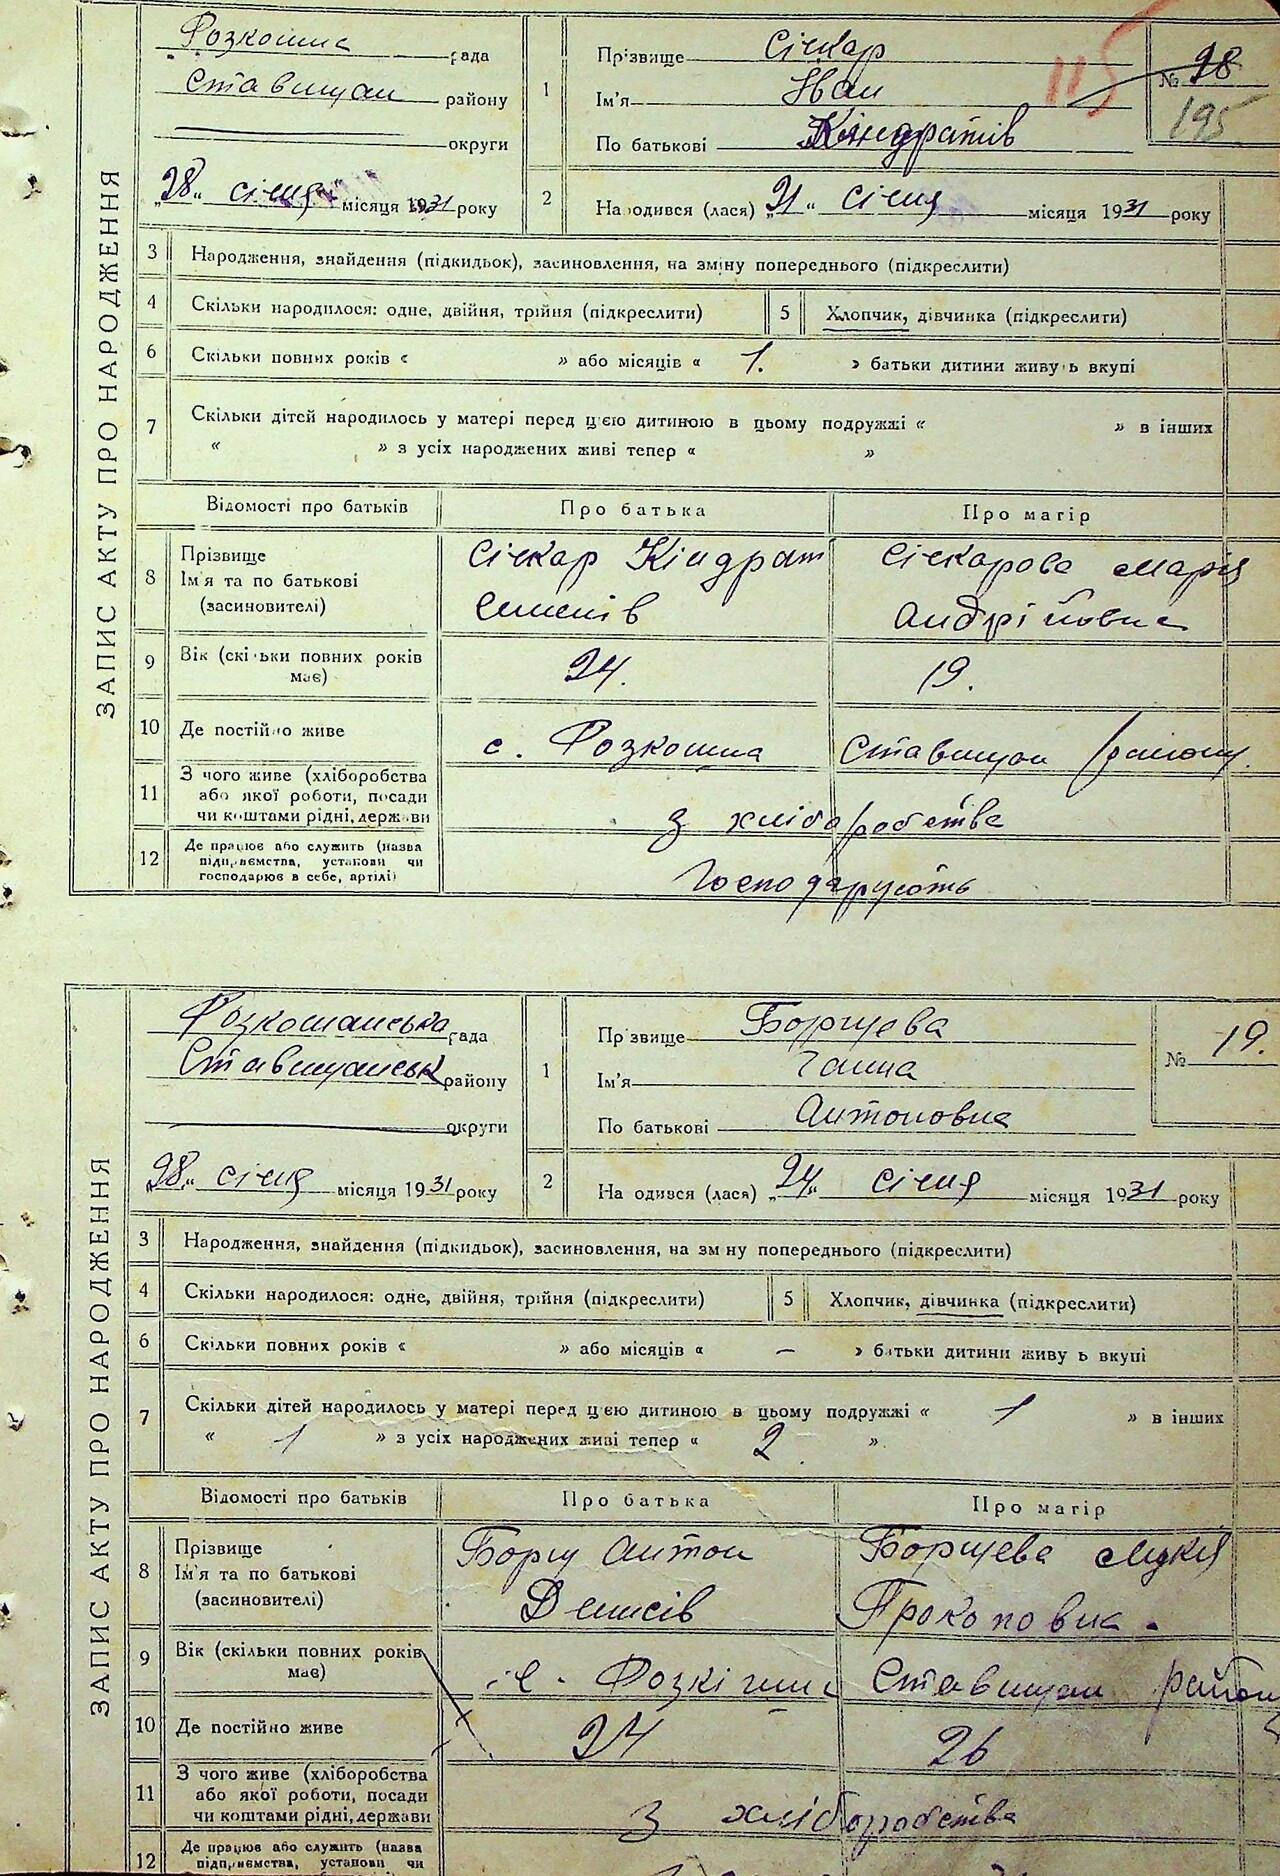 ЗАПИС АКТУ ПРО НАРОДЖЕННЯ
Розкошна рада
Ставищан району
округи
„28“ січня місяця 1931 року
1
Прізвище Січкар
Ім'я Іван
По батькові Кіндратів
115
№ 98
195
2
Народився (лася) „21“ січня місяця 1931 року
3 Народження, знайдення (підкидьок), засиновлення, на зміну попереднього (підкреслити)
4 Скільки народилося: одне, двійня, трійня (підкреслити)
5 Хлопчик, дівчинка (підкреслити)
6 Скільки повних років « » або місяців « 1. » батьки дитини живуть вкупі
7 Скільки дітей народилось у матері перед цією дитиною в цьому подружжі « » в інших
« » з усіх народжених живі тепер « »
Відомості про батьків Про батька Про матір
8 Прізвище
Ім'я та по батькові
(засиновителі)
Січкар Кіндрат
Семенів
Січкарова Марія
Андрійовна
9 Вік (скільки повних років має)
24. 19.
10 Де постійно живе
с. Розкошна Ставищан району.
11 З чого живе (хліборобства
або якої роботи, посади
чи коштами рідні, держави
з хліборобства
12 Де працює або служить (назва
підприємства, установи чи
господарює в себе, артілі)
Господарують
ЗАПИС АКТУ ПРО НАРОДЖЕННЯ
Розкошанська рада
Ставищанськ району
округи
„28“ січня місяця 1931 року
1
Прізвище Борщева
Ім'я Ганна
По батькові Антоновна
№ 19.
2
Народився (лася) „24“ січня місяця 1931 року
3 Народження, знайдення (підкидьок), засиновлення, на зміну попереднього (підкреслити)
4 Скільки народилося: одне, двійня, трійня (підкреслити)
5 Хлопчик, дівчинка (підкреслити)
6 Скільки повних років « » або місяців « — » батьки дитини живуть вкупі
7 Скільки дітей народилось у матері перед цією дитиною в цьому подружжі « 1 » в інших
« 1 » з усіх народжених живі тепер « 2 »
Відомості про батьків Про батька Про матір
8 Прізвище
Ім'я та по батькові
(засиновителі)
Борщ Антон
Денисів
Борщева
Прокоповна.
9 Вік (скільки повних років має)
с. Ставищан район
10 Де постійно живе
24 26
11 З чого живе (хліборобства
або якої роботи, посади
чи коштами рідні, держави
з хліборобства
12 Де працює або служить (назва
підприємства, установи чи